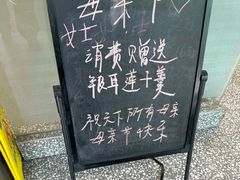 母亲节♡
女士
消费赠送
银耳莲子羹
祝天下所有母亲
母亲节快乐